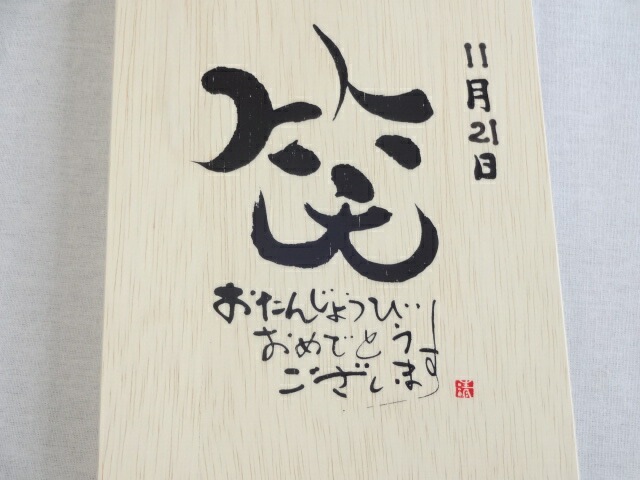 11月21日
笑
おたんじょうび
おめでとう
ございます